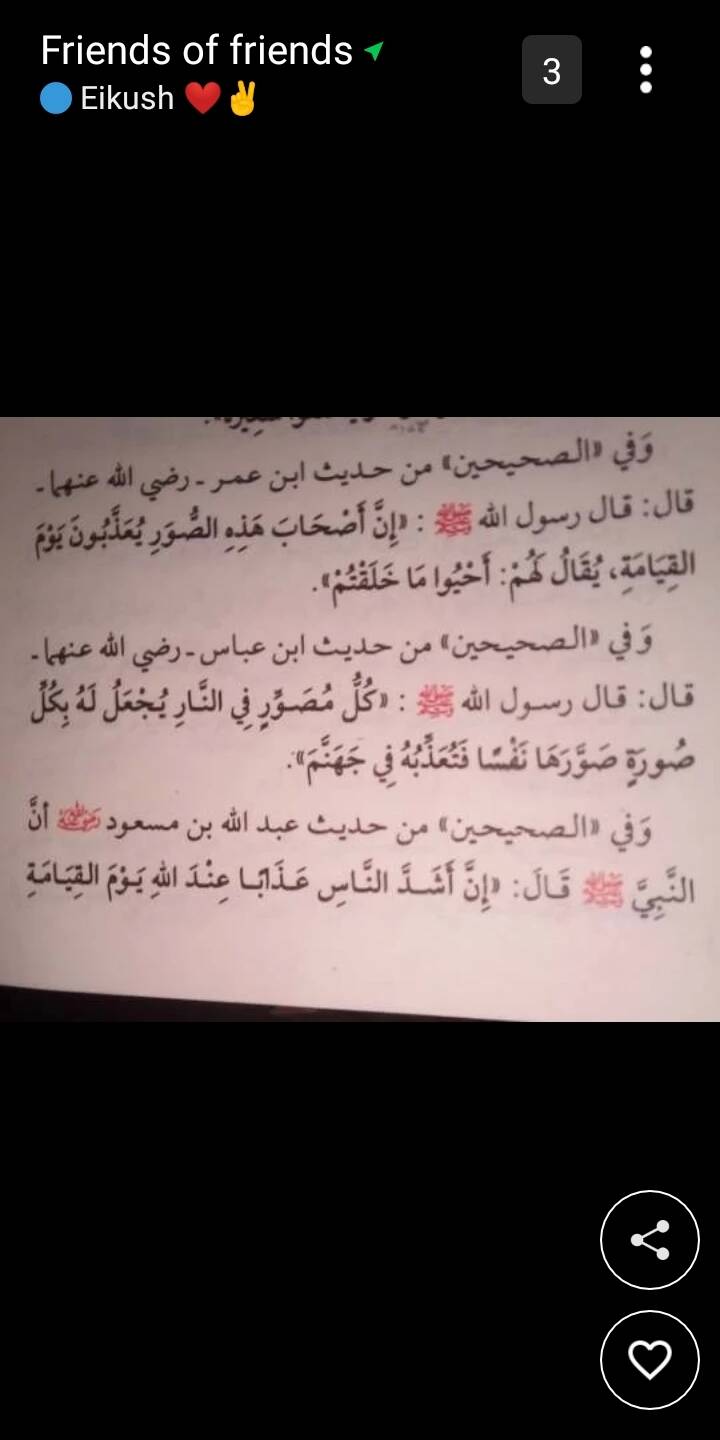 Friends of friends
Eikush ❤️✌️
3
وَفي «الصحيحين» من حديث ابن عمر ـ رضي الله عنهما ـ
قال: قال رسول الله ﷺ : «إِنَّ أَصْحَابَ هَذِهِ الصُّوَرِ يُعَذَّبُونَ يَوْمَ
القِيَامَةِ، يُقَالُ لَهُمْ: أَحْيُوا مَا خَلَقْتُمْ».
وَفي «الصحيحين» من حديث ابن عباس ـ رضي الله عنهما ـ
قال: قال رسول الله ﷺ : «كُلُّ مُصَوِّرٍ فِي النَّارِ يُجْعَلُ لَهُ بِكُلِّ
صُورَةٍ صَوَّرَهَا نَفْسًا فَتُعَذِّبُهُ فِي جَهَنَّمَ».
وَفي «الصحيحين» من حديث عبد الله بن مسعود رضي الله عنه أنَّ
النَّبِيَّ ﷺ قَالَ: «إِنَّ أَشَدَّ النَّاسِ عَذَابًا عِنْدَ اللهِ يَوْمَ القِيَامَةِ